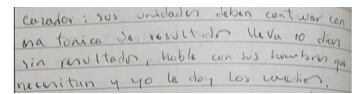 cazador: sus unidades deben continuar con
ma tonica de resultados lleva 10 dias
sin resultados, hable con sus hombres que
necesitan y yo le doy los medios.